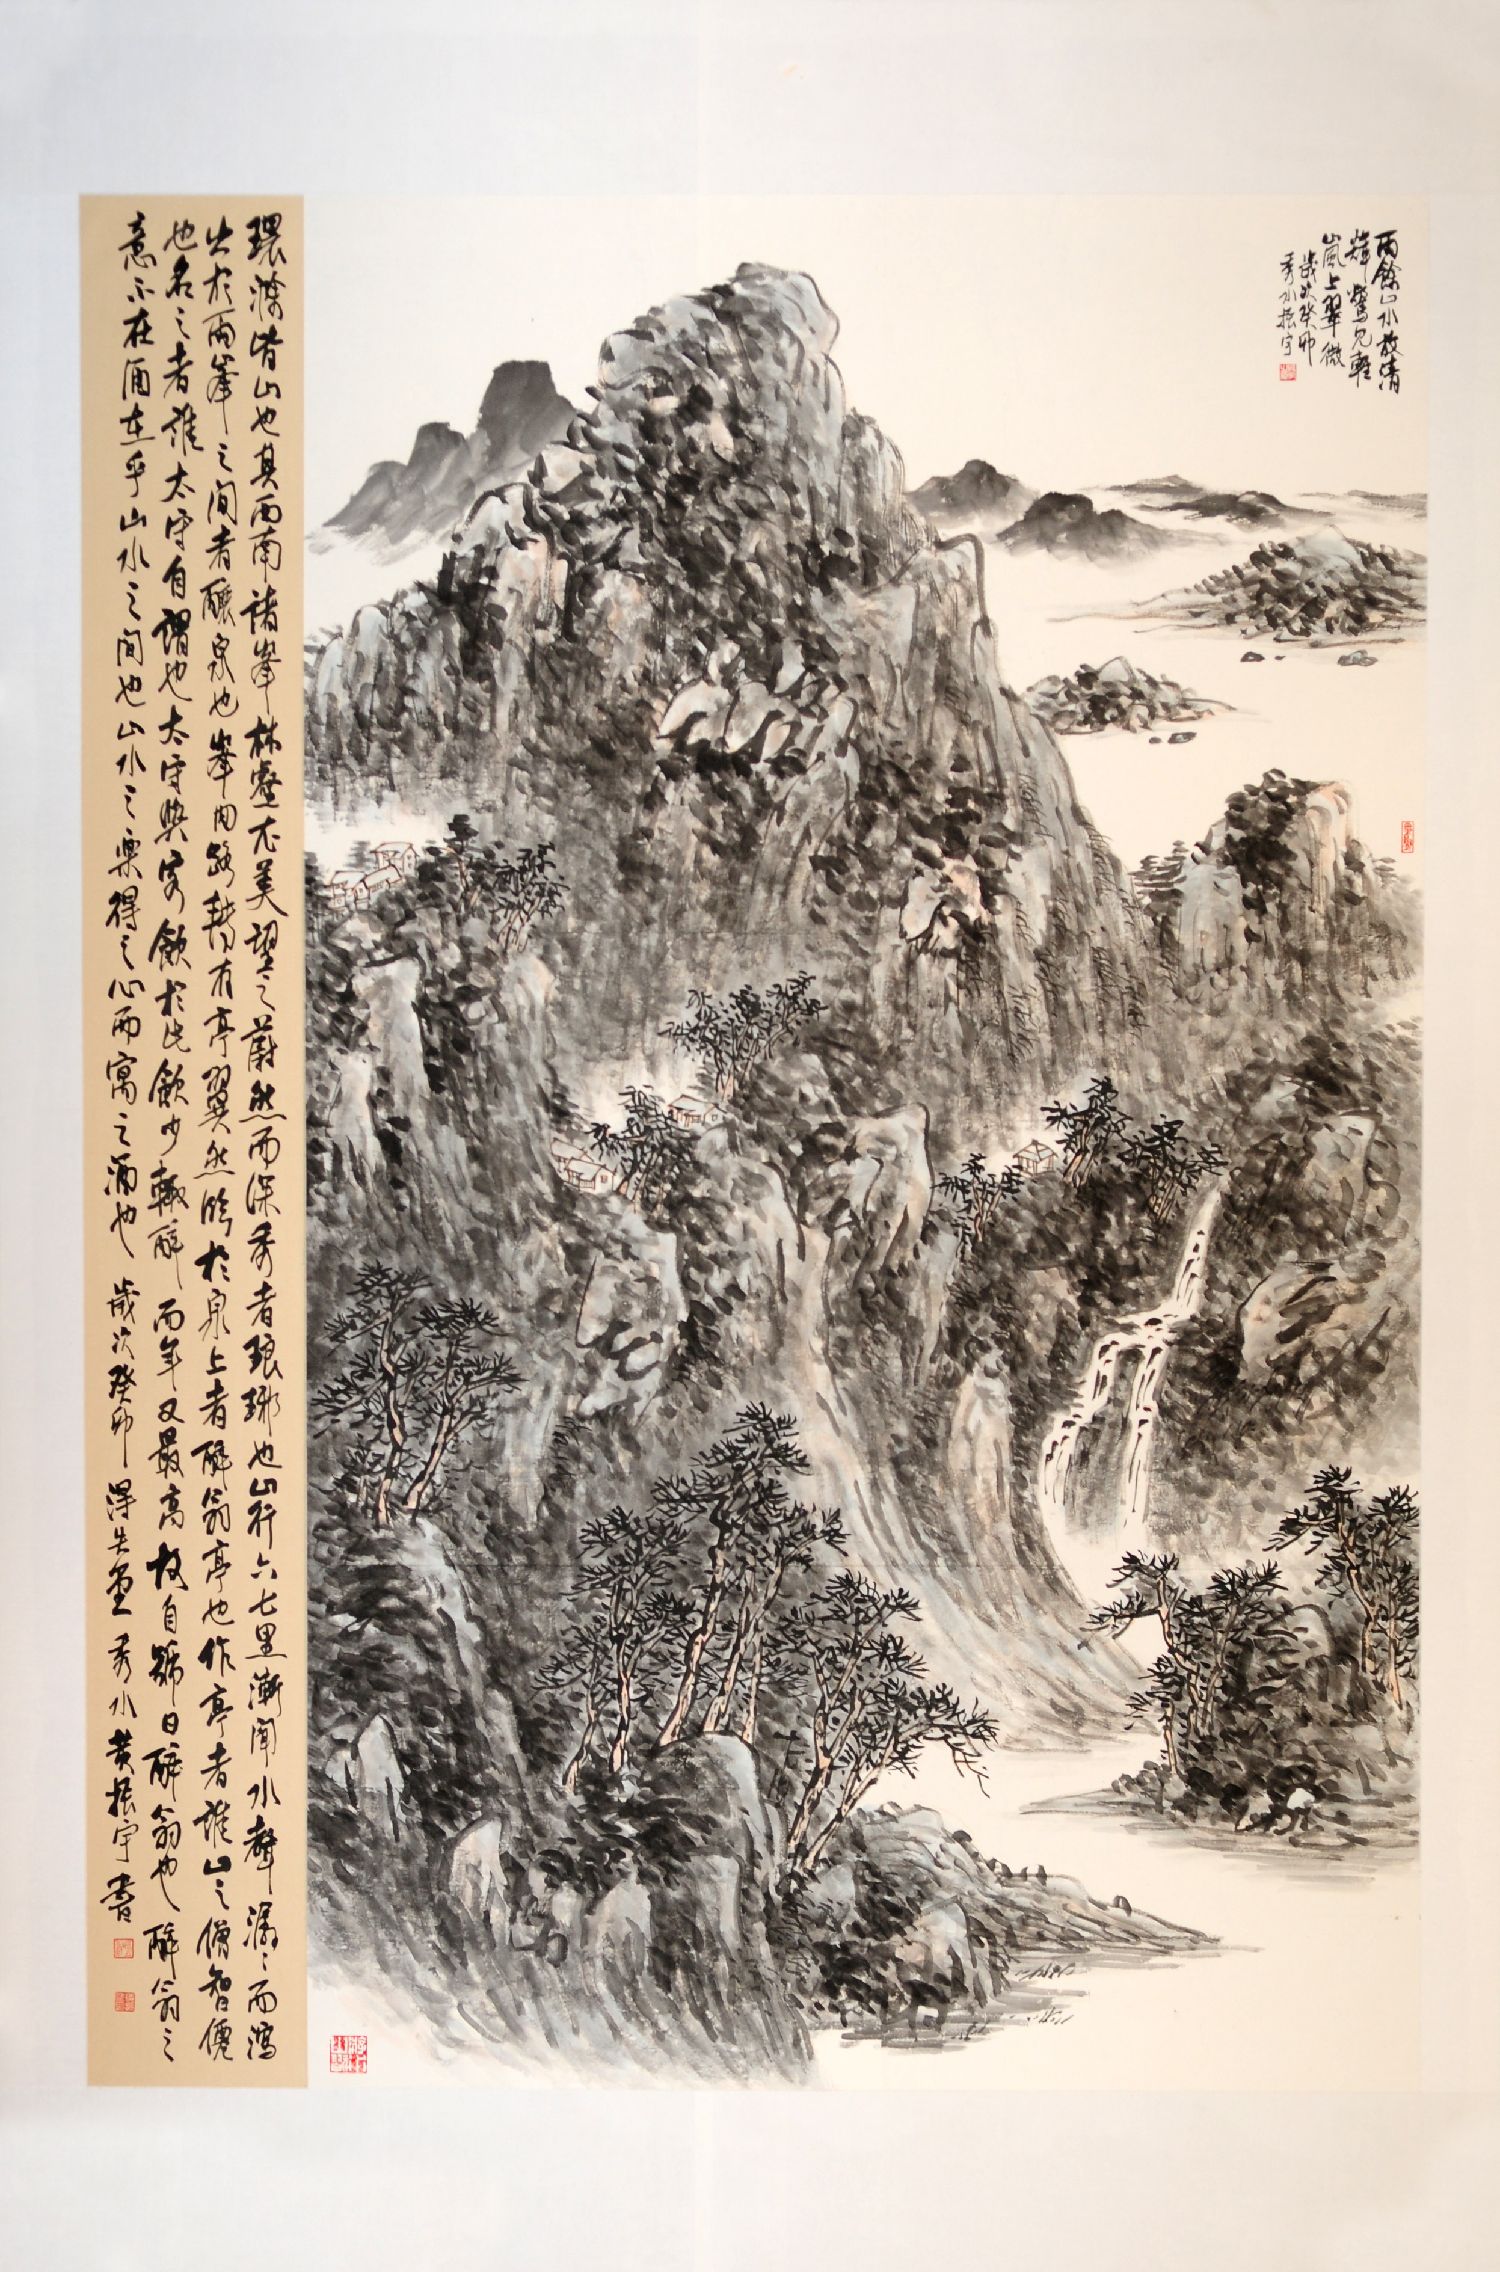 雨餘山水放清
輝驚見輕
嵐上翠微
歲次癸卯
秀水振宇
環滁皆山也其西南諸峯林壑尤美望之蔚然而深秀者琅琊也山行六七里漸聞水聲潺〻而瀉
出於兩峯之間者釀泉也峯回路轉有亭翼然臨於泉上者醉翁亭也作亭者誰山之僧智僊
也名之者誰太守自謂也太守與客飲於此飲少輒醉而年又最高故自號曰醉翁也醉翁之
意不在酒在乎山水之間也山水之樂得之心而寓之酒也 歲次癸卯 得失 秀水黃振宇書